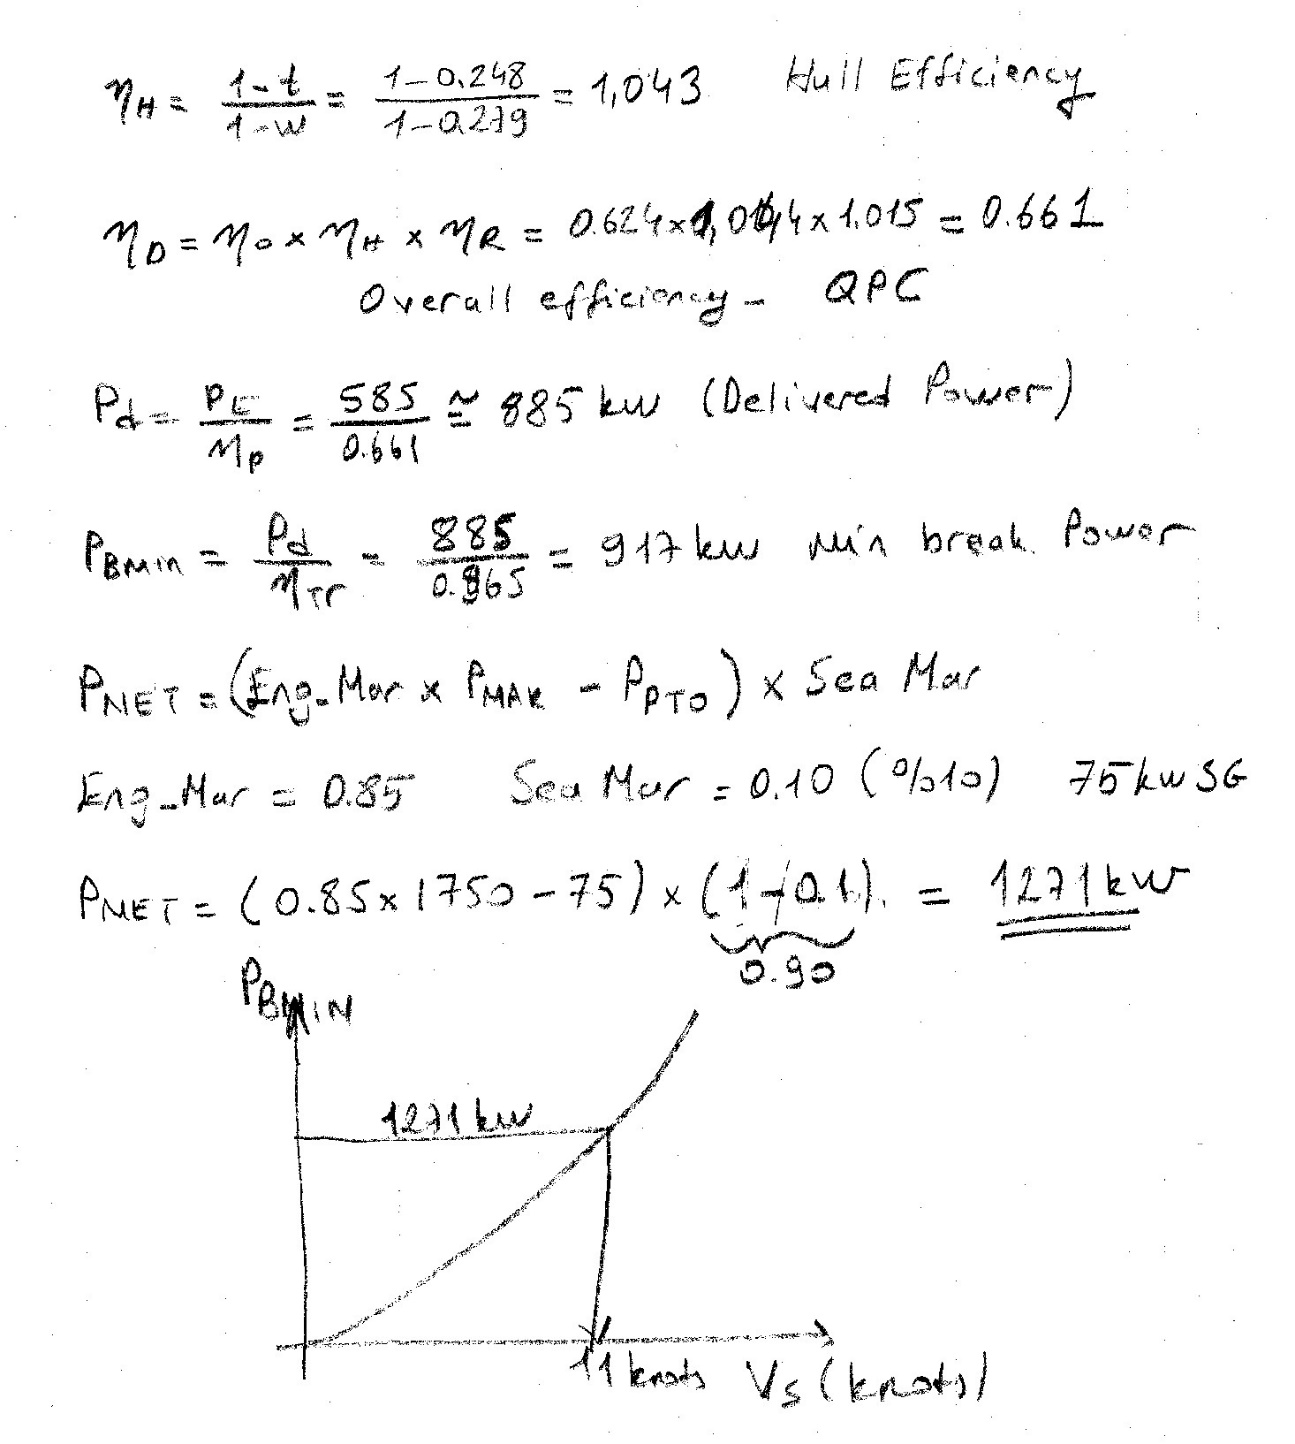 η_H = (1-t)/(1-w) = (1-0.248)/(1-0.279) = 1,043 Hull Efficiency
η_D = η_O × η_H × η_R = 0.624 × 1,044 × 1.015 = 0.661
Overall efficiency - QPC
Pd = P_E/η_P = 585/0.661 ≅ 885 kw (Delivered Power)
P_BMin = Pd/η_Tr = 885/0.965 = 917 kw Min break. Power
P_NET = (Eng_Mar × P_MAX - P_PTO) × Sea Mar
Eng_Mar = 0.85 Sea Mar = 0.10 (%10) 75 kw SG
P_NET = (0.85 × 1750 - 75) × (1-0.1). = 1271 kw
0.90
P_BMIN
1271 kw
11 knots Vs (knots)